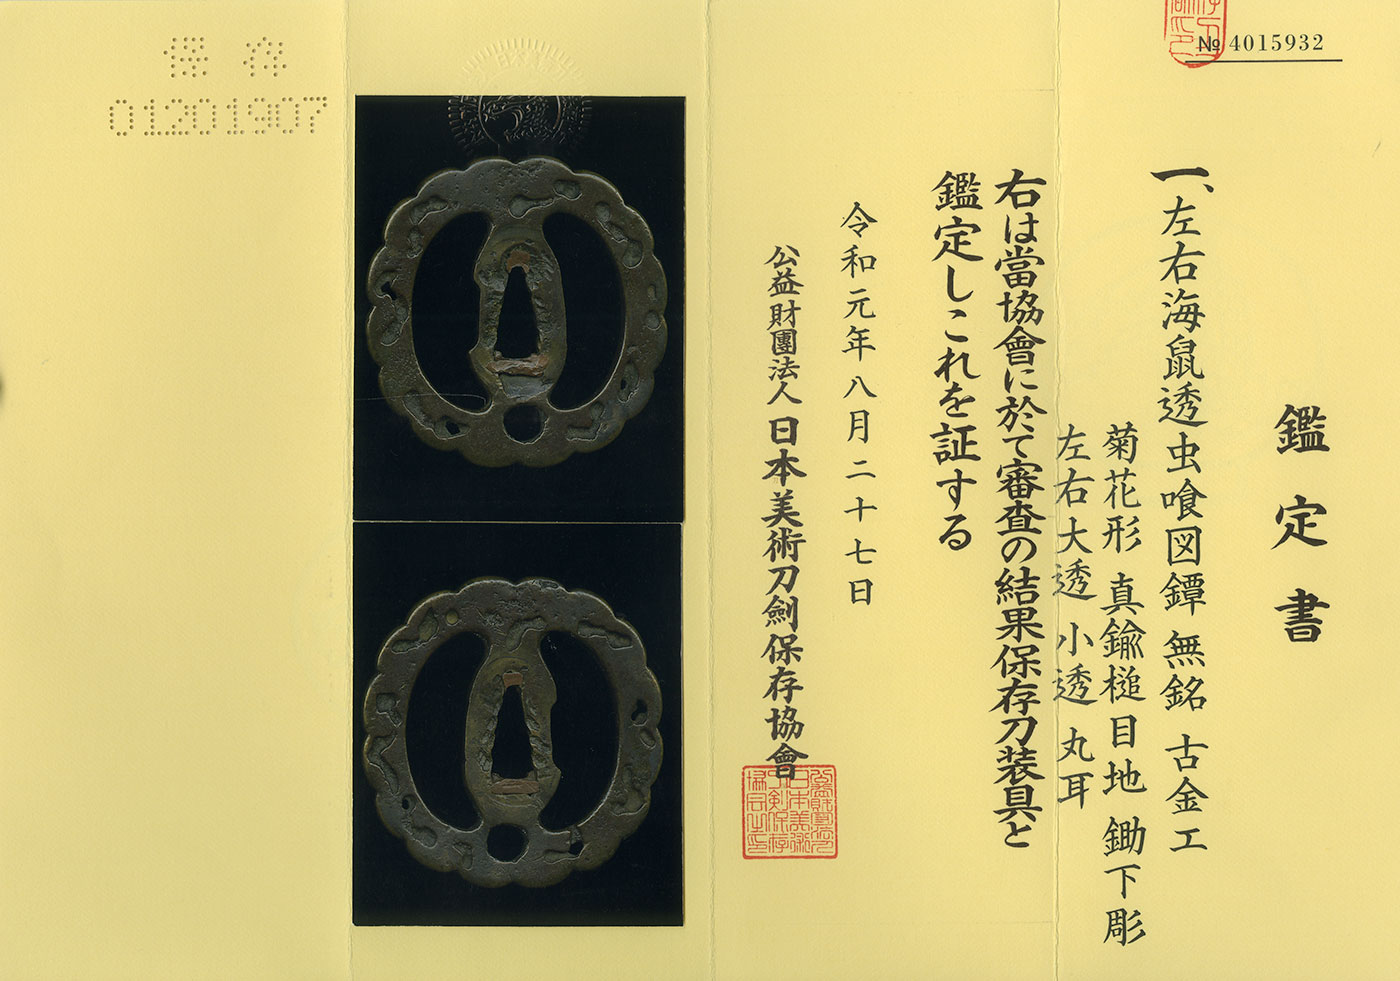 № 4015932
鑑定書
一、左右海鼠透虫喰図鐔 無銘 古金工
菊花形 真鍮槌目地 鋤下彫
左右大透 小透 丸耳
右は當協會に於て審査の結果保存刀装具と
鑑定しこれを証する
令和元年八月二十七日
公益財團法人 日本美術刀劍保存協會
保存
01201907